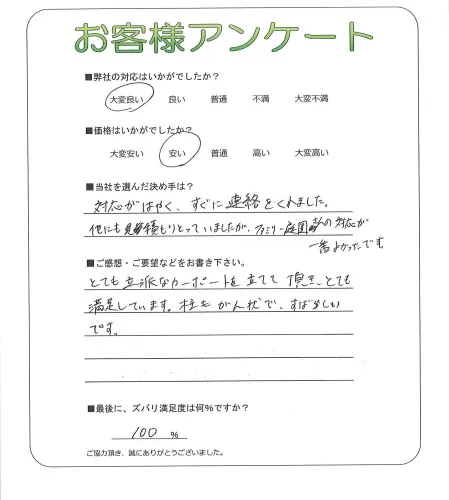 お客様アンケート
■弊社の対応はいかがでしたか？
大変良い 良い 普通 不満 大変不満
■価格はいかがでしたか？
大変安い 安い 普通 高い 大変高い
■当社を選んだ決め手は？
対応がはやく、すぐに連絡をくれました。
他にも見積もりとっていましたが、ファミリー庭園の対応が
一番よかったです
■ご感想・ご要望などをお書き下さい。
とても立派なカーポートを立てて頂き、とても
満足しています。柱もがん状で、すばらしい
です。
■最後に、ズバリ満足度は何%ですか？
100 %
ご協力頂き、誠にありがとうございました。